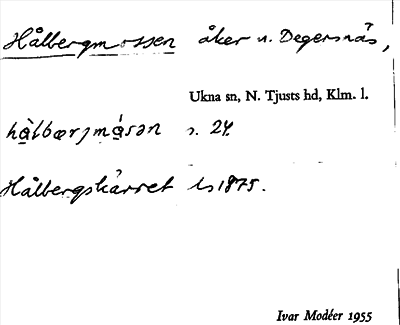 Hålbergmossen åker u. Degersnäs,
Ukna sn, N. Tjusts hd, Klm. l.
hàlbærjmásən s. 24.
Hålbergskärret ls 1875.
Ivar Modéer 1955